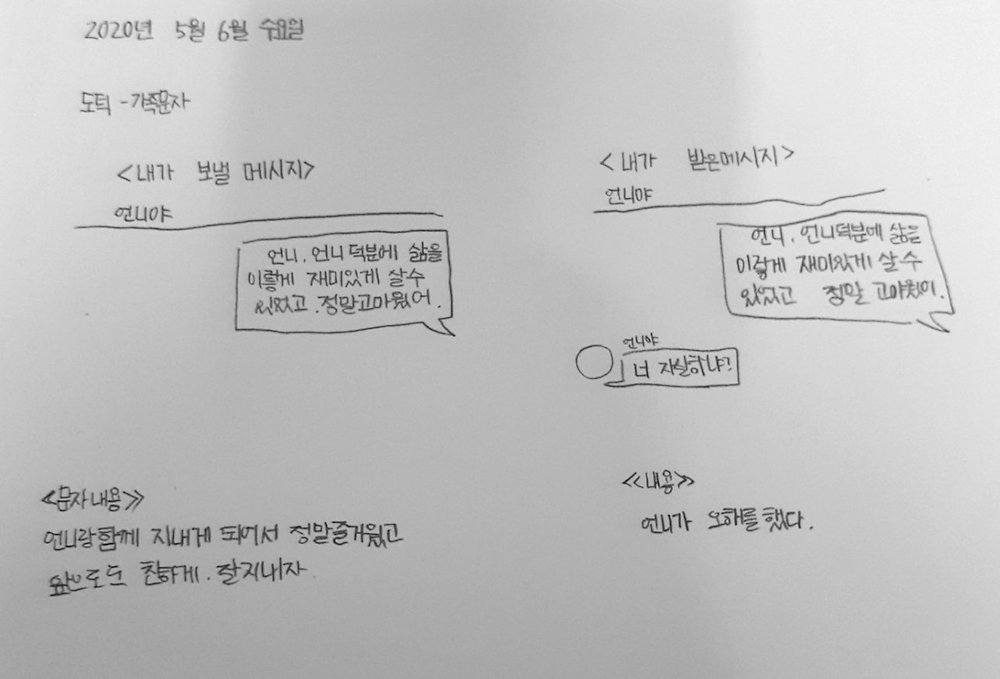 2020년 5월 6월 수요일
도덕 - 가족문자
<내가 보낼 메시지>
언니야
언니, 언니 덕분에 삶을
이렇게 재미있게 살수
있었고, 정말고마웠어.
<<문자내용>>
언니랑함께 지내게 되어서 정말즐거웠고
앞으로도 친하게. 잘지내자.
<내가 받은메시지>
언니야
언니, 언니덕분에 삶을
이렇게 재미있게 살수
있었고 정말 고마웠어.
언니야
너 자살하냐?
<<내용>>
언니가 오해를 했다.